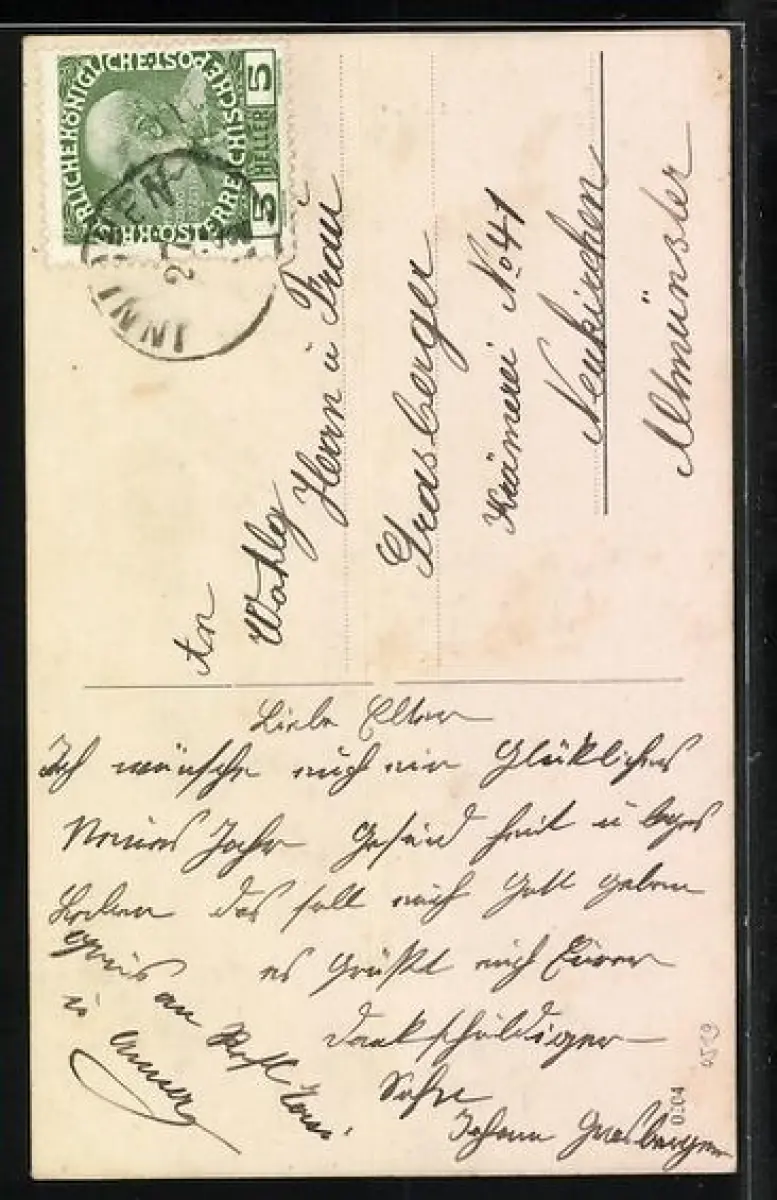 KAISERLICHE KÖNIGLICHE ÖSTERREICHISCHE POST
5 HELLER 5
INNI EN
27
An
Wohlg
Herrn u Frau
Grasberger
Krämerei No 41
Neukirchen
Altmünster
Liebe Eltern
Ich wünsche euch ein Glückliches
Neues Jahr Gesund heit u langes
Leben das soll euch Gott geben
es Grüßt euch Eurer
dankschuldiger
Sohn
Johann Grasberger
Gruis an
u
0204
4519